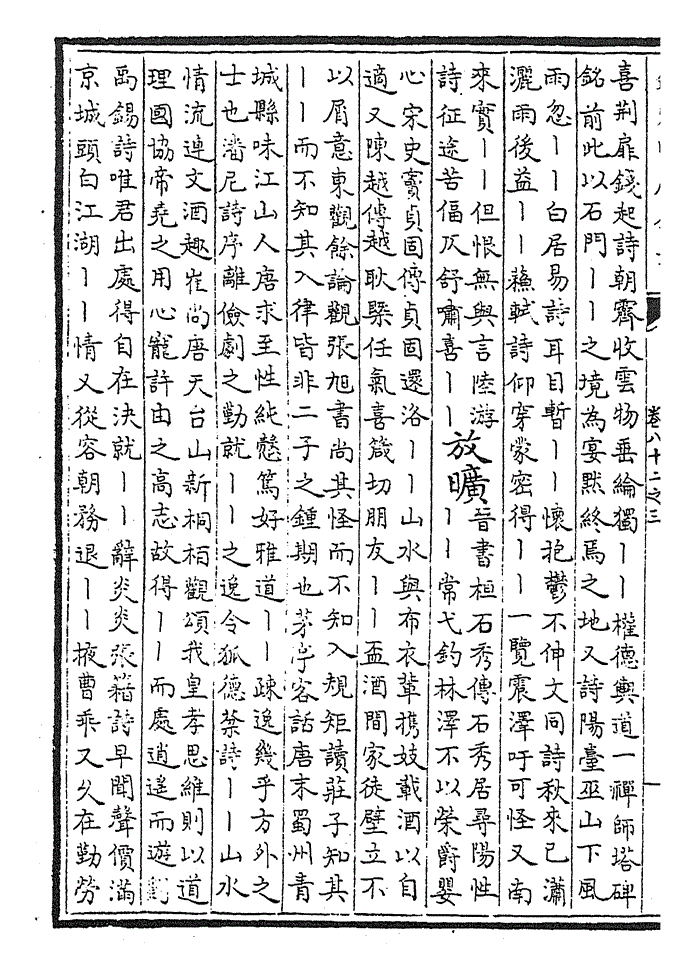 卷八十二之三
喜荆扉錢起詩朝霽收雲物垂綸獨丨丨權德輿道一禪師塔碑
銘前此以石門丨丨之境為宴黙終焉之地又詩陽臺巫山下風
雨忽丨丨白居易詩耳目暫丨丨懷抱鬱不伸文同詩秋來已瀟
灑雨後益丨丨蘇軾詩仰穿蒙密得丨丨一覽震澤吁可怪又南
來實丨丨但恨無與言陸游
詩征途苦偪仄舒嘯喜丨丨
放曠
晉書桓石秀傳石秀居尋陽性
丨丨常弋釣林澤不以榮爵嬰
心宋史竇貞固傳貞固還洛丨丨山水與布衣輩攜妓載酒以自
適又陳越傳越耿槩任氣喜箴切朋友丨丨盃酒間家徒壁立不
以屑意東觀餘論觀張旭書尚其怪而不知入規矩讀莊子知其
丨丨而不知其入律皆非二子之鍾期也茅亭客話唐末蜀州青
城縣味江山人唐求至性純慤篤好雅道丨丨疎逸幾乎方外之
士也潘尼詩序離儉劇之勤就丨丨之逸令狐德棻詩丨丨山水
情流連文酒趣崔尚唐天台山新桐柏觀頌我皇孝思維則以道
理國協帝堯之用心寵許由之高志故得丨丨而處逍遙而遊劉
禹錫詩唯君出處得自在決就丨丨辭炎炎張籍詩早聞聲價滿
京城頭白江湖丨丨情又從容朝務退丨丨掖曹乘又久在勤勞